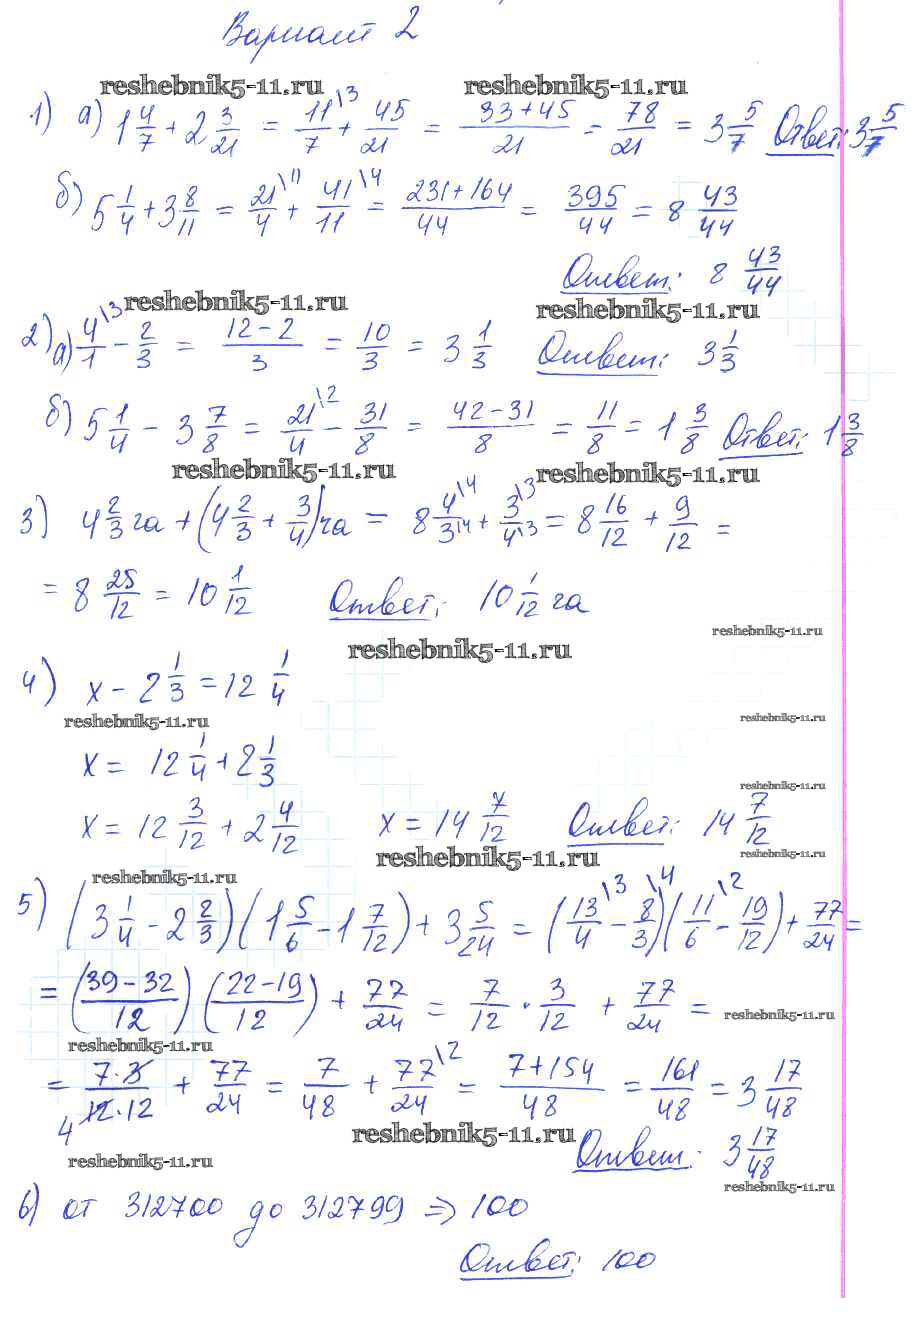 Вариант 2
reshebnik5-11.ru reshebnik5-11.ru
1) а) 1 4/7 + 2 3/21 = 11\3/7 + 45/21 = 33+45/21 = 78/21 = 3 5/7 Ответ: 3 5/7
б) 5 1/4 + 3 8/11 = 21\11/4 + 41\4/11 = 231+164/44 = 395/44 = 8 43/44
Ответ: 8 43/44
reshebnik5-11.ru reshebnik5-11.ru
2) а) 4\3/1 - 2/3 = 12-2/3 = 10/3 = 3 1/3 Ответ: 3 1/3
б) 5 1/4 - 3 7/8 = 21\2/4 - 31/8 = 42-31/8 = 11/8 = 1 3/8 Ответ: 1 3/8
reshebnik5-11.ru reshebnik5-11.ru
3) 4 2/3 га + (4 2/3 + 3/4) га = 8 4\4/3\4 + 3\3/4\3 = 8 16/12 + 9/12 =
= 8 25/12 = 10 1/12 Ответ: 10 1/12 га
reshebnik5-11.ru
reshebnik5-11.ru
4) x - 2 1/3 = 12 1/4
reshebnik5-11.ru reshebnik5-11.ru
x = 12 1/4 + 2 1/3
reshebnik5-11.ru
x = 12 3/12 + 2 4/12 x = 14 7/12 Ответ: 14 7/12
reshebnik5-11.ru reshebnik5-11.ru
reshebnik5-11.ru
5) (3 1/4 - 2 2/3)(1 5/6 - 1 7/12) + 3 5/24 = (13\3/4 - 8\4/3)(11\2/6 - 19/12) + 77/24 =
= (39-32/12)(22-19/12) + 77/24 = 7/12 · 3/12 + 77/24 =
reshebnik5-11.ru
reshebnik5-11.ru
= 7·3/12·12 4 + 77/24 = 7/48 + 77\2/24 = 7+154/48 = 161/48 = 3 17/48
reshebnik5-11.ru
Ответ: 3 17/48
reshebnik5-11.ru
reshebnik5-11.ru
6) от 312700 до 312799 => 100
Ответ: 100